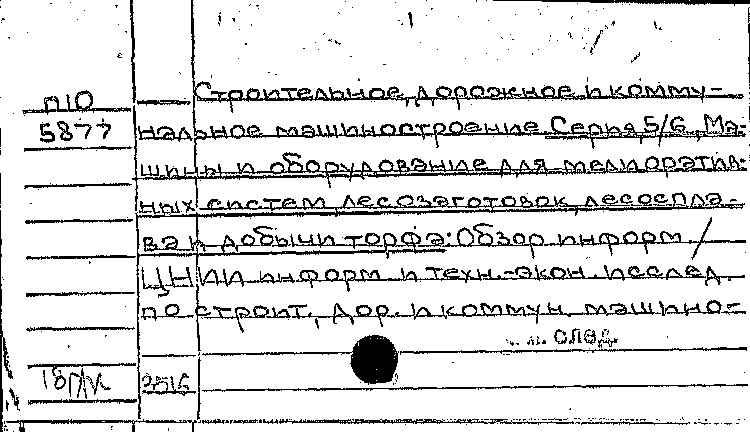 П10
5877
Строительное, дорожное и комму-
нальное машиностроение. Серия 5/6, Ма-
шины и оборудование для мелиоратив-
ных систем, лесозаготовок, лесоспла-
ва и добычи торфа: Обзор. информ. /
ЦНИИ информ. и техн.-экон. исслед.
по строит., дор. и коммун. машино-
след